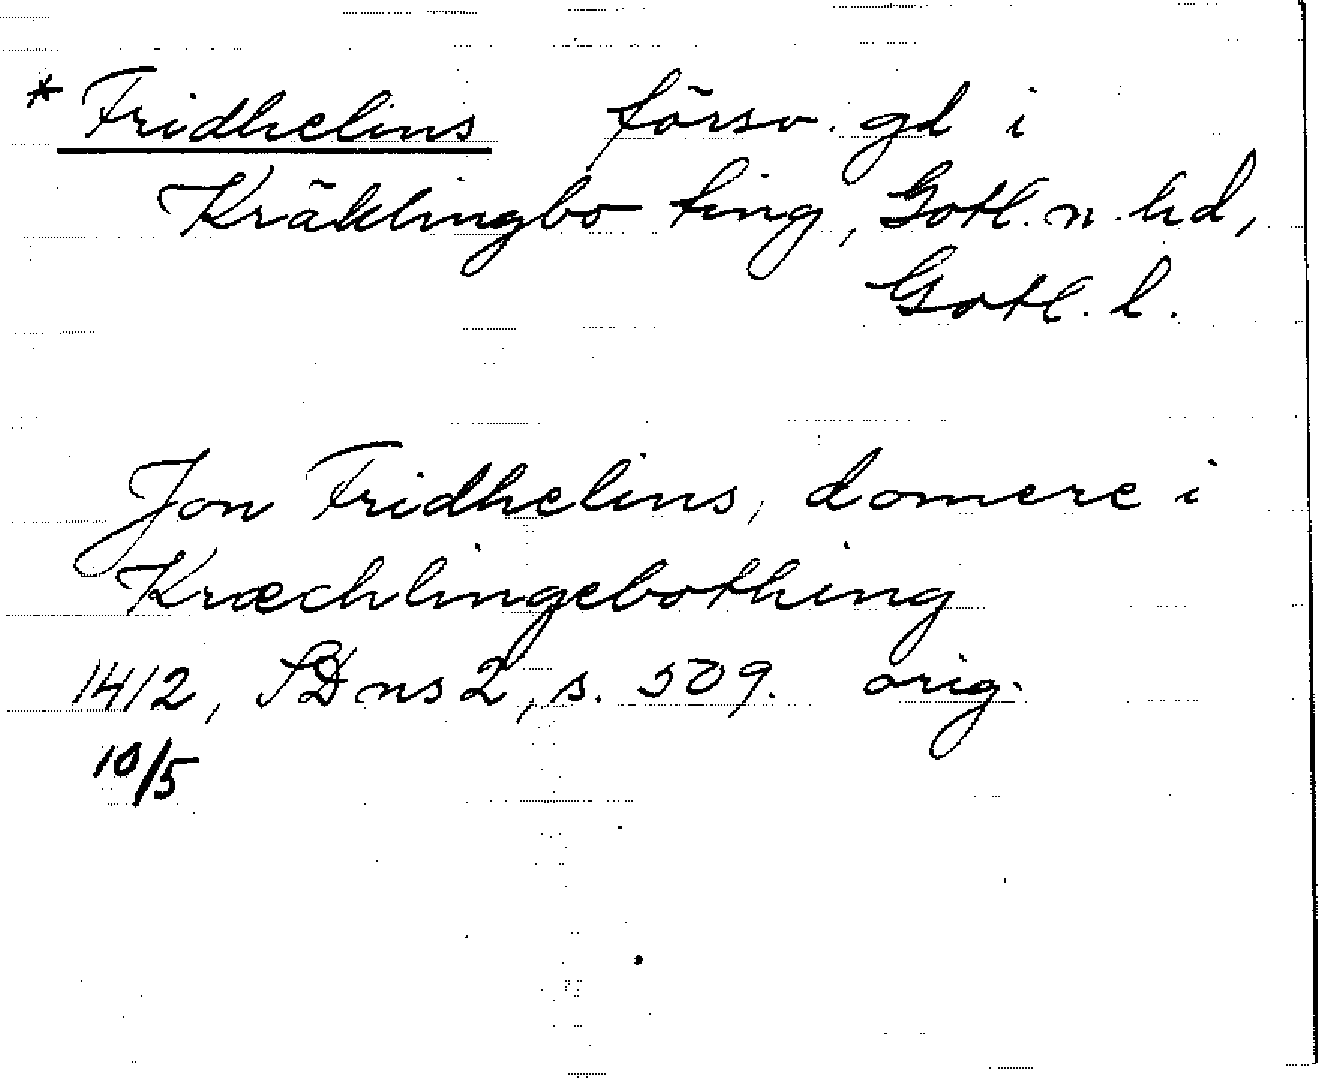 * Fridhelins försv. gd i
Kräklingbo ting, Gotl. n. hd,
Gotl. l.
Jon Fridhelins, domere i
Kræchlingebothing
1412, SD ns 2, s. 509. orig.
10/5